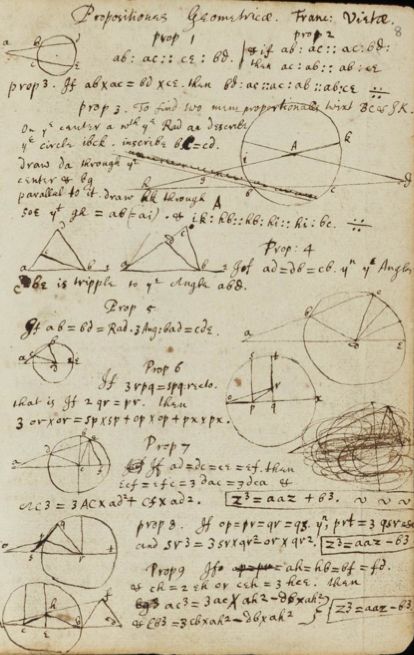 Propositiones Geometricæ. Franc: Vietæ.
8
prop 1
prop 2
ab: ac:: ce: bd.
& if ab: ac:: ac: bd:
then ac: ab:: ab: ce
prop 3. If ab×ac = bd×ce. then bd: ac:: ac: ab:: ab: ce ∺
prop 3. To find two mean proportionalls twixt BC & GK.
On ye center a wth ye Rad ab describe
ye circle ibck. inscribe bc=cd.
draw da through ye
center & bg
parallel to it. draw hk through A
soe yt gh = ab (= ai). & ik: hb:: hb: hi:: hi: bc. ∺
Prop: 4
If ad=db=cb. yn ye Angle
dbe is tripple to ye Angle abd.
Prop 5
If ab = bd = Rad. 3 Ang: bad = cde.
Prop 6
If 3rpq = spq.recto.
that is if 2qr = pr. then
3 or×or = sp×sp + op×op + px×px.
Prop 7
If ad=dc=ce=ef. then
ecf = efc = 3dac = 3dca &
AC3 = 3AC×ad2 + cf×ad2. z3 = aaz + b3.
prop 8. If op=pr=qr=qs. yn prt = 3 qsr
and sr3 = 3sr×qr2 or×qr2. z3 = aaz - b3
Prop 9 If ah=hb=bf=fd.
& ch = 2eh or ceh = 3hce. then
ac3 = 3ac×ah2 - db×ah2
& cb3 = 3cb×ah2 - db×ah2 z3 = aaz - b3